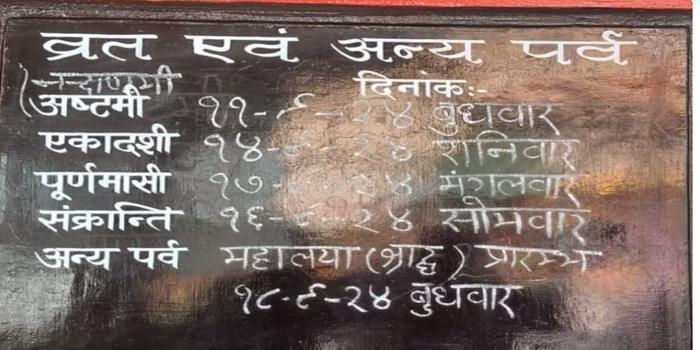 व्रत एवं अन्य पर्व
दिनांक:-
अष्टमी ११-९-२४ बुधवार
एकादशी १४-९-२४ शनिवार
पूर्णमासी १७-९-२४ मंगलवार
संक्रान्ति १६-९-२४ सोमवार
अन्य पर्व महालया (श्राद्ध) प्रारम्भ
१८-९-२४ बुधवार